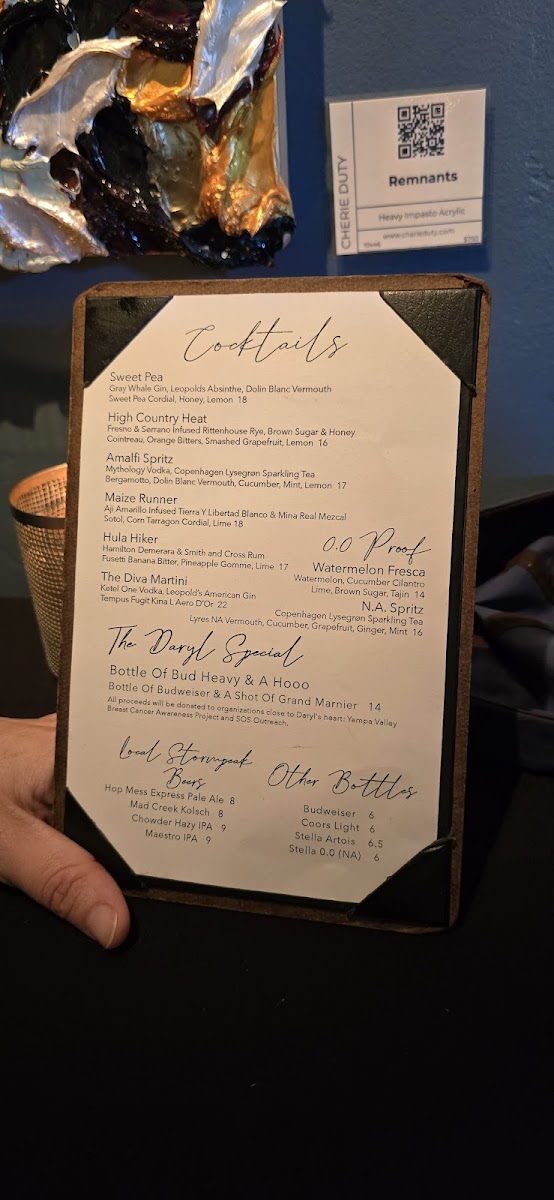 CHERIE DUTY
Remnants
Heavy Impasto Acrylic
www.cherieduty.com
$750
Cocktails
Sweet Pea
Gray Whale Gin, Leopolds Absinthe, Dolin Blanc Vermouth
Sweet Pea Cordial, Honey, Lemon 18
High Country Heat
Fresno & Serrano Infused Rittenhouse Rye, Brown Sugar & Honey
Cointreau, Orange Bitters, Smashed Grapefruit, Lemon 16
Amalfi Spritz
Mythology Vodka, Copenhagen Lysegrøn Sparkling Tea
Bergamotto, Dolin Blanc Vermouth, Cucumber, Mint, Lemon 17
Maize Runner
Aji Amarillo Infused Tierra Y Libertad Blanco & Mina Real Mezcal
Sotol, Corn Tarragon Cordial, Lime 18
Hula Hiker
Hamilton Demerara & Smith and Cross Rum
Fusetti Banana Bitter, Pineapple Gomme, Lime 17
The Diva Martini
Ketel One Vodka, Leopold's American Gin
Tempus Fugit Kina L Aero D'Or 22
0.0 Proof
Watermelon Fresca
Watermelon, Cucumber Cilantro
Lime, Brown Sugar, Tajin 14
N.A. Spritz
Copenhagen Lysegrøn Sparkling Tea
Lyres NA Vermouth, Cucumber, Grapefruit, Ginger, Mint 16
The Daryl Special
Bottle Of Bud Heavy & A Hooo
Bottle Of Budweiser & A Shot Of Grand Marnier 14
All proceeds will be donated to organizations close to Daryl's heart: Yampa Valley
Breast Cancer Awareness Project and SOS Outreach.
Local Stormpeak
Beers
Hop Mess Express Pale Ale 8
Mad Creek Kolsch 8
Chowder Hazy IPA 9
Maestro IPA 9
Other Bottles
Budweiser 6
Coors Light 6
Stella Artois 6.5
Stella 0.0 (NA) 6